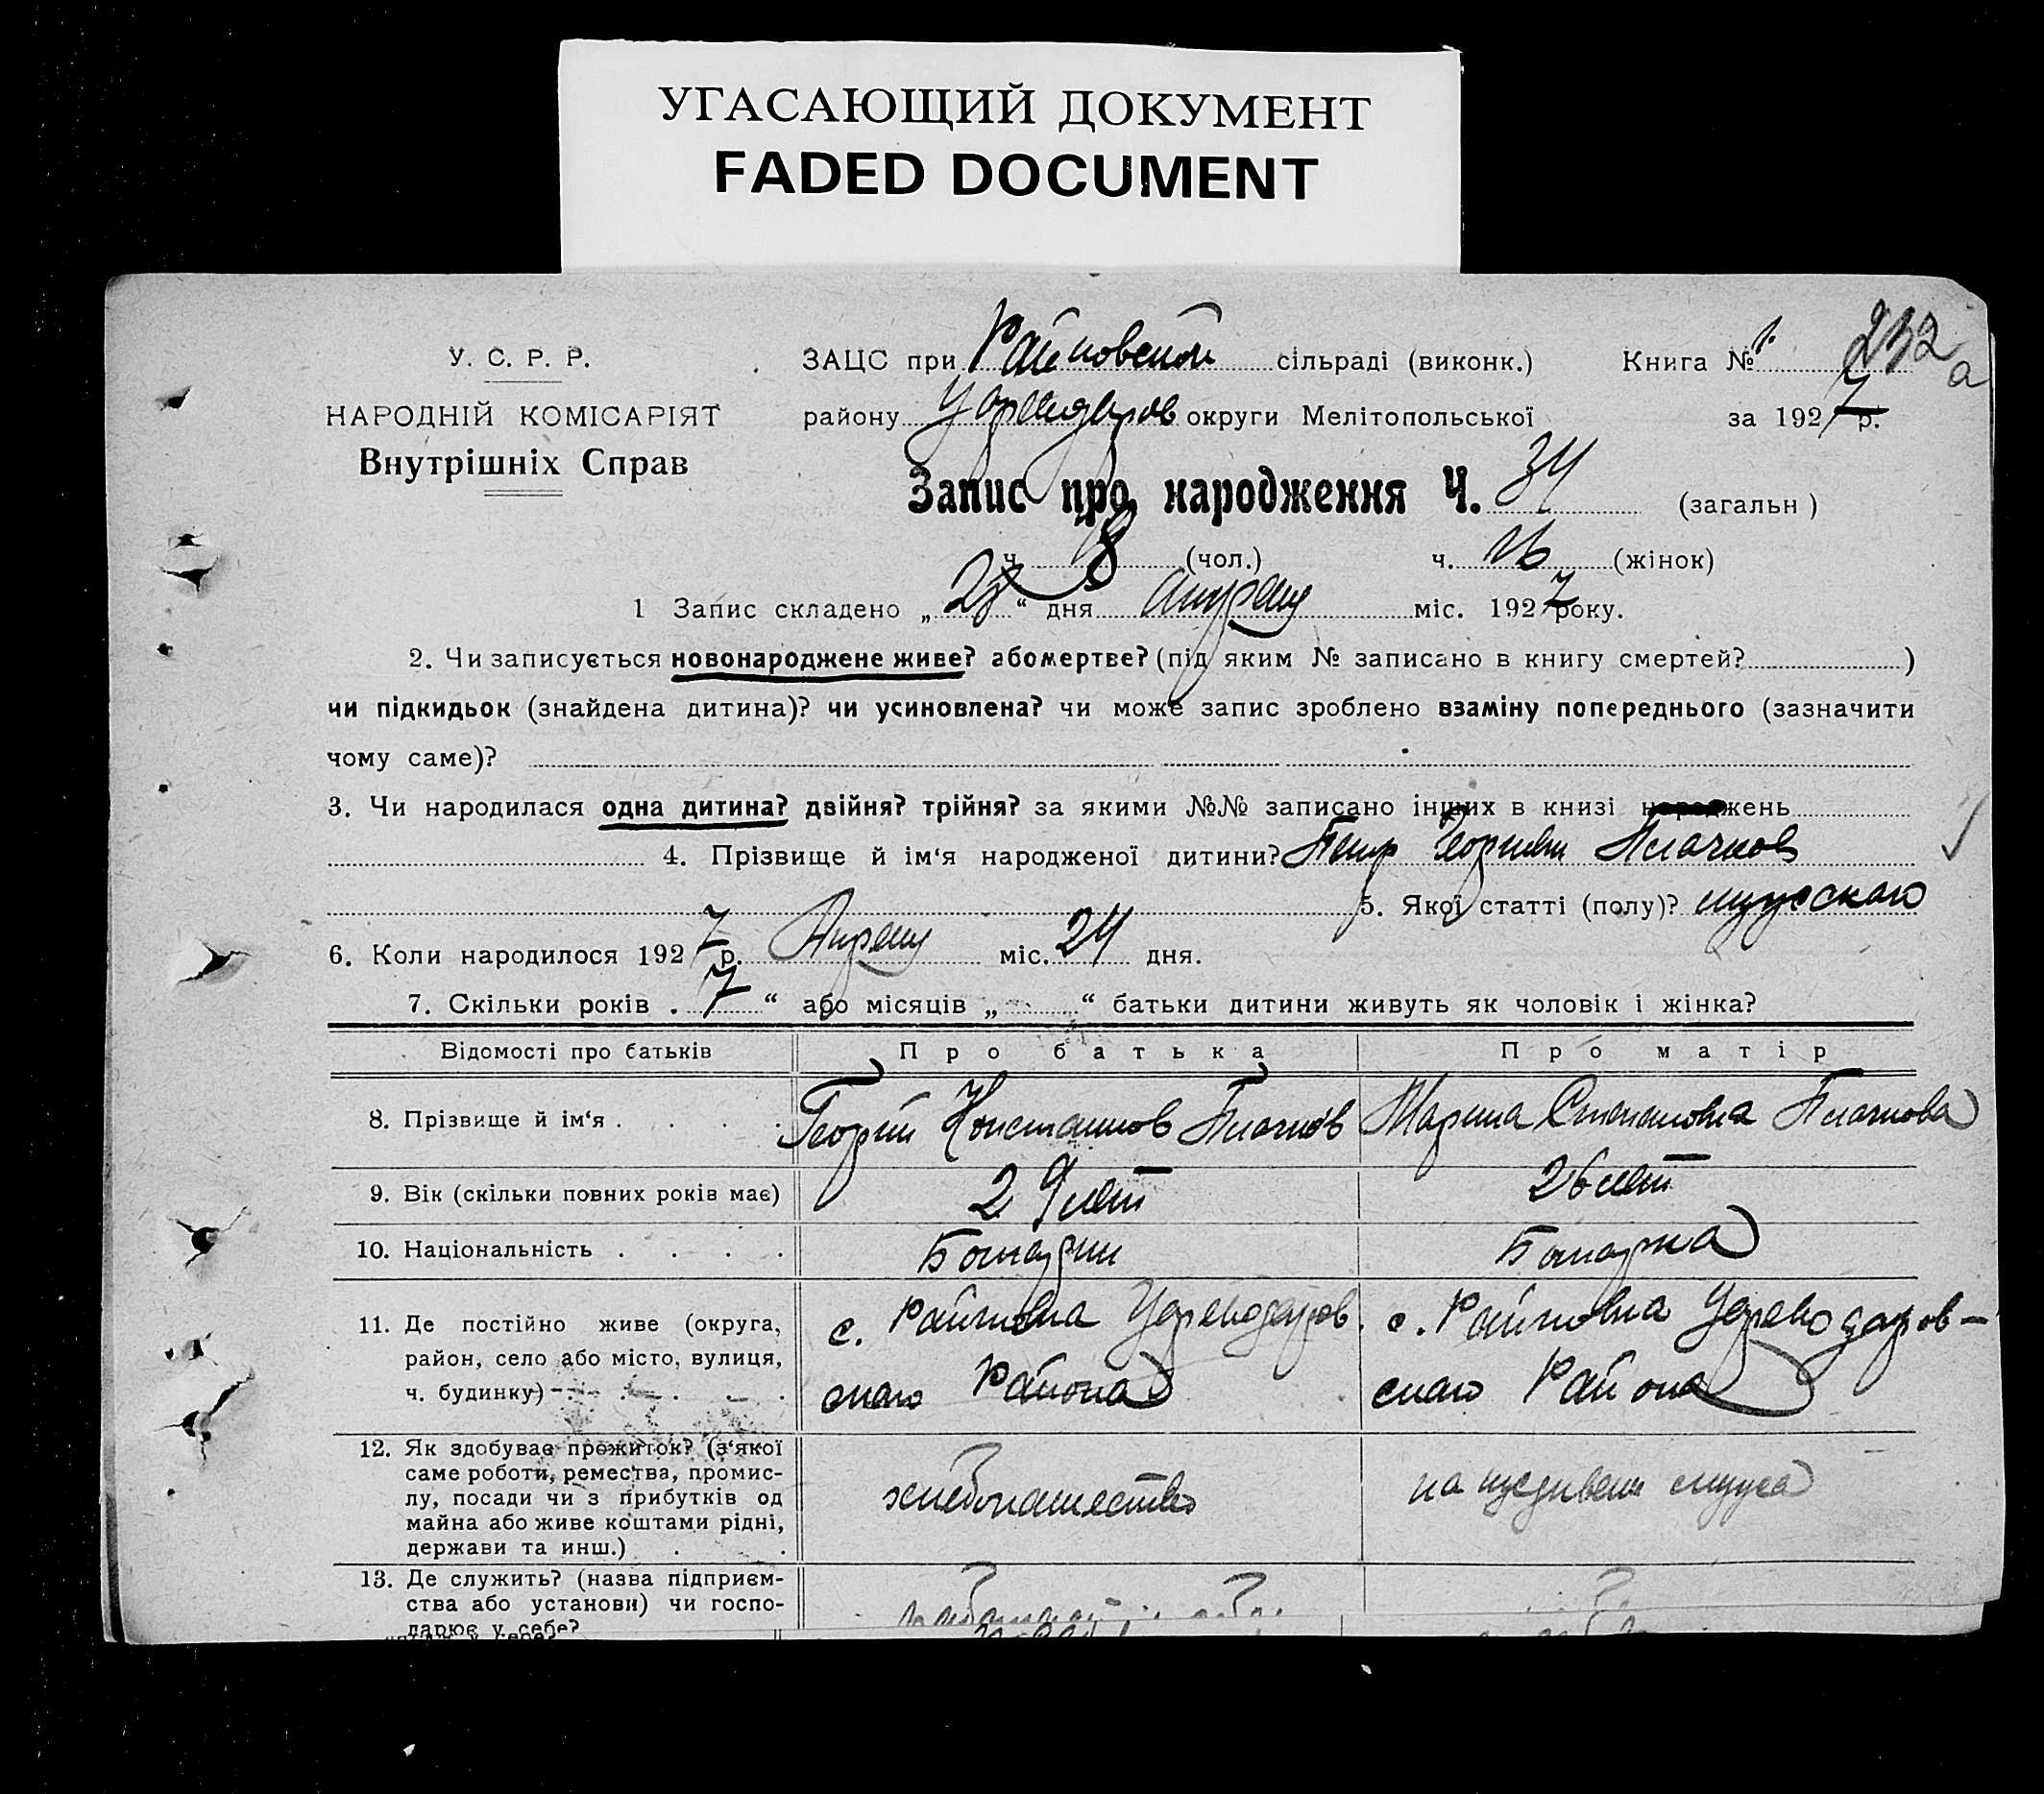 УГАСАЮЩИЙ ДОКУМЕНТ
FADED DOCUMENT
232 а
У. С. Р. Р.
ЗАЦС при Райновской сільраді (виконк.) Книга № 1.
НАРОДНІЙ КОМІСАРІЯТ
району округи Мелітопольської за 1927 р.
Внутрішніх Справ
Запис про народження Ч. 34 (загальн)
ч. 18 (чол.) ч. 16 (жінок)
1 Запис складено „ “ дня апреля міс. 1927 року.
2. Чи записується новонароджене живе? або мертве? (під яким № записано в книгу смертей? )
чи підкидьок (знайдена дитина)? чи усиновлена? чи може запис зроблено взаміну попереднього (зазначити
чому саме)?
3. Чи народилася одна дитина? двійня? трійня? за якими №№ записано інших в книзі народжень
4. Прізвище й ім‘я народженої дитини? Петр Георгиев Плачков
5. Якої статті (полу)? мужскаго
6. Коли народилося 1927 р. Апреля міс. 24 дня.
7. Скільки років . 7 “ або місяців „ “ батьки дитини живуть як чоловік і жінка?
Відомості про батьків Про батька Про матір
8. Прізвище й ім‘я . . . . Георгий Константинов Плачков Марина Степановна Плачкова
9. Вік (скільки повних років має) 29 лет 26 лет
10. Національність . . . . Болгарин Болгарка
11. Де постійно живе (округа, с. Райновка с. Райновка
район, село або місто, вулиця,
ч. будинку) – . . . . скаго Района скаго Района
12. Як здобуває прожиток? (з‘якої
саме роботи, ремества, промис-
лу, посади чи з прибутків од хлебопашество на иждивении мужа
майна або живе коштами рідні,
держави та инш.) . .
13. Де служить? (назва підприєм-
ства або установи) чи госпо-
дарює у себе?